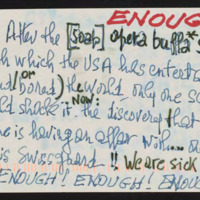 ENOUG
After the [soap] opera buffa*s
which the USA has entert
(or bored) the world only one s
ld shock it. NOW: the discovery that
e is having an affair with... a
is Swissguard!! We are sick
ENOUGH! ENOUGH! ENOU